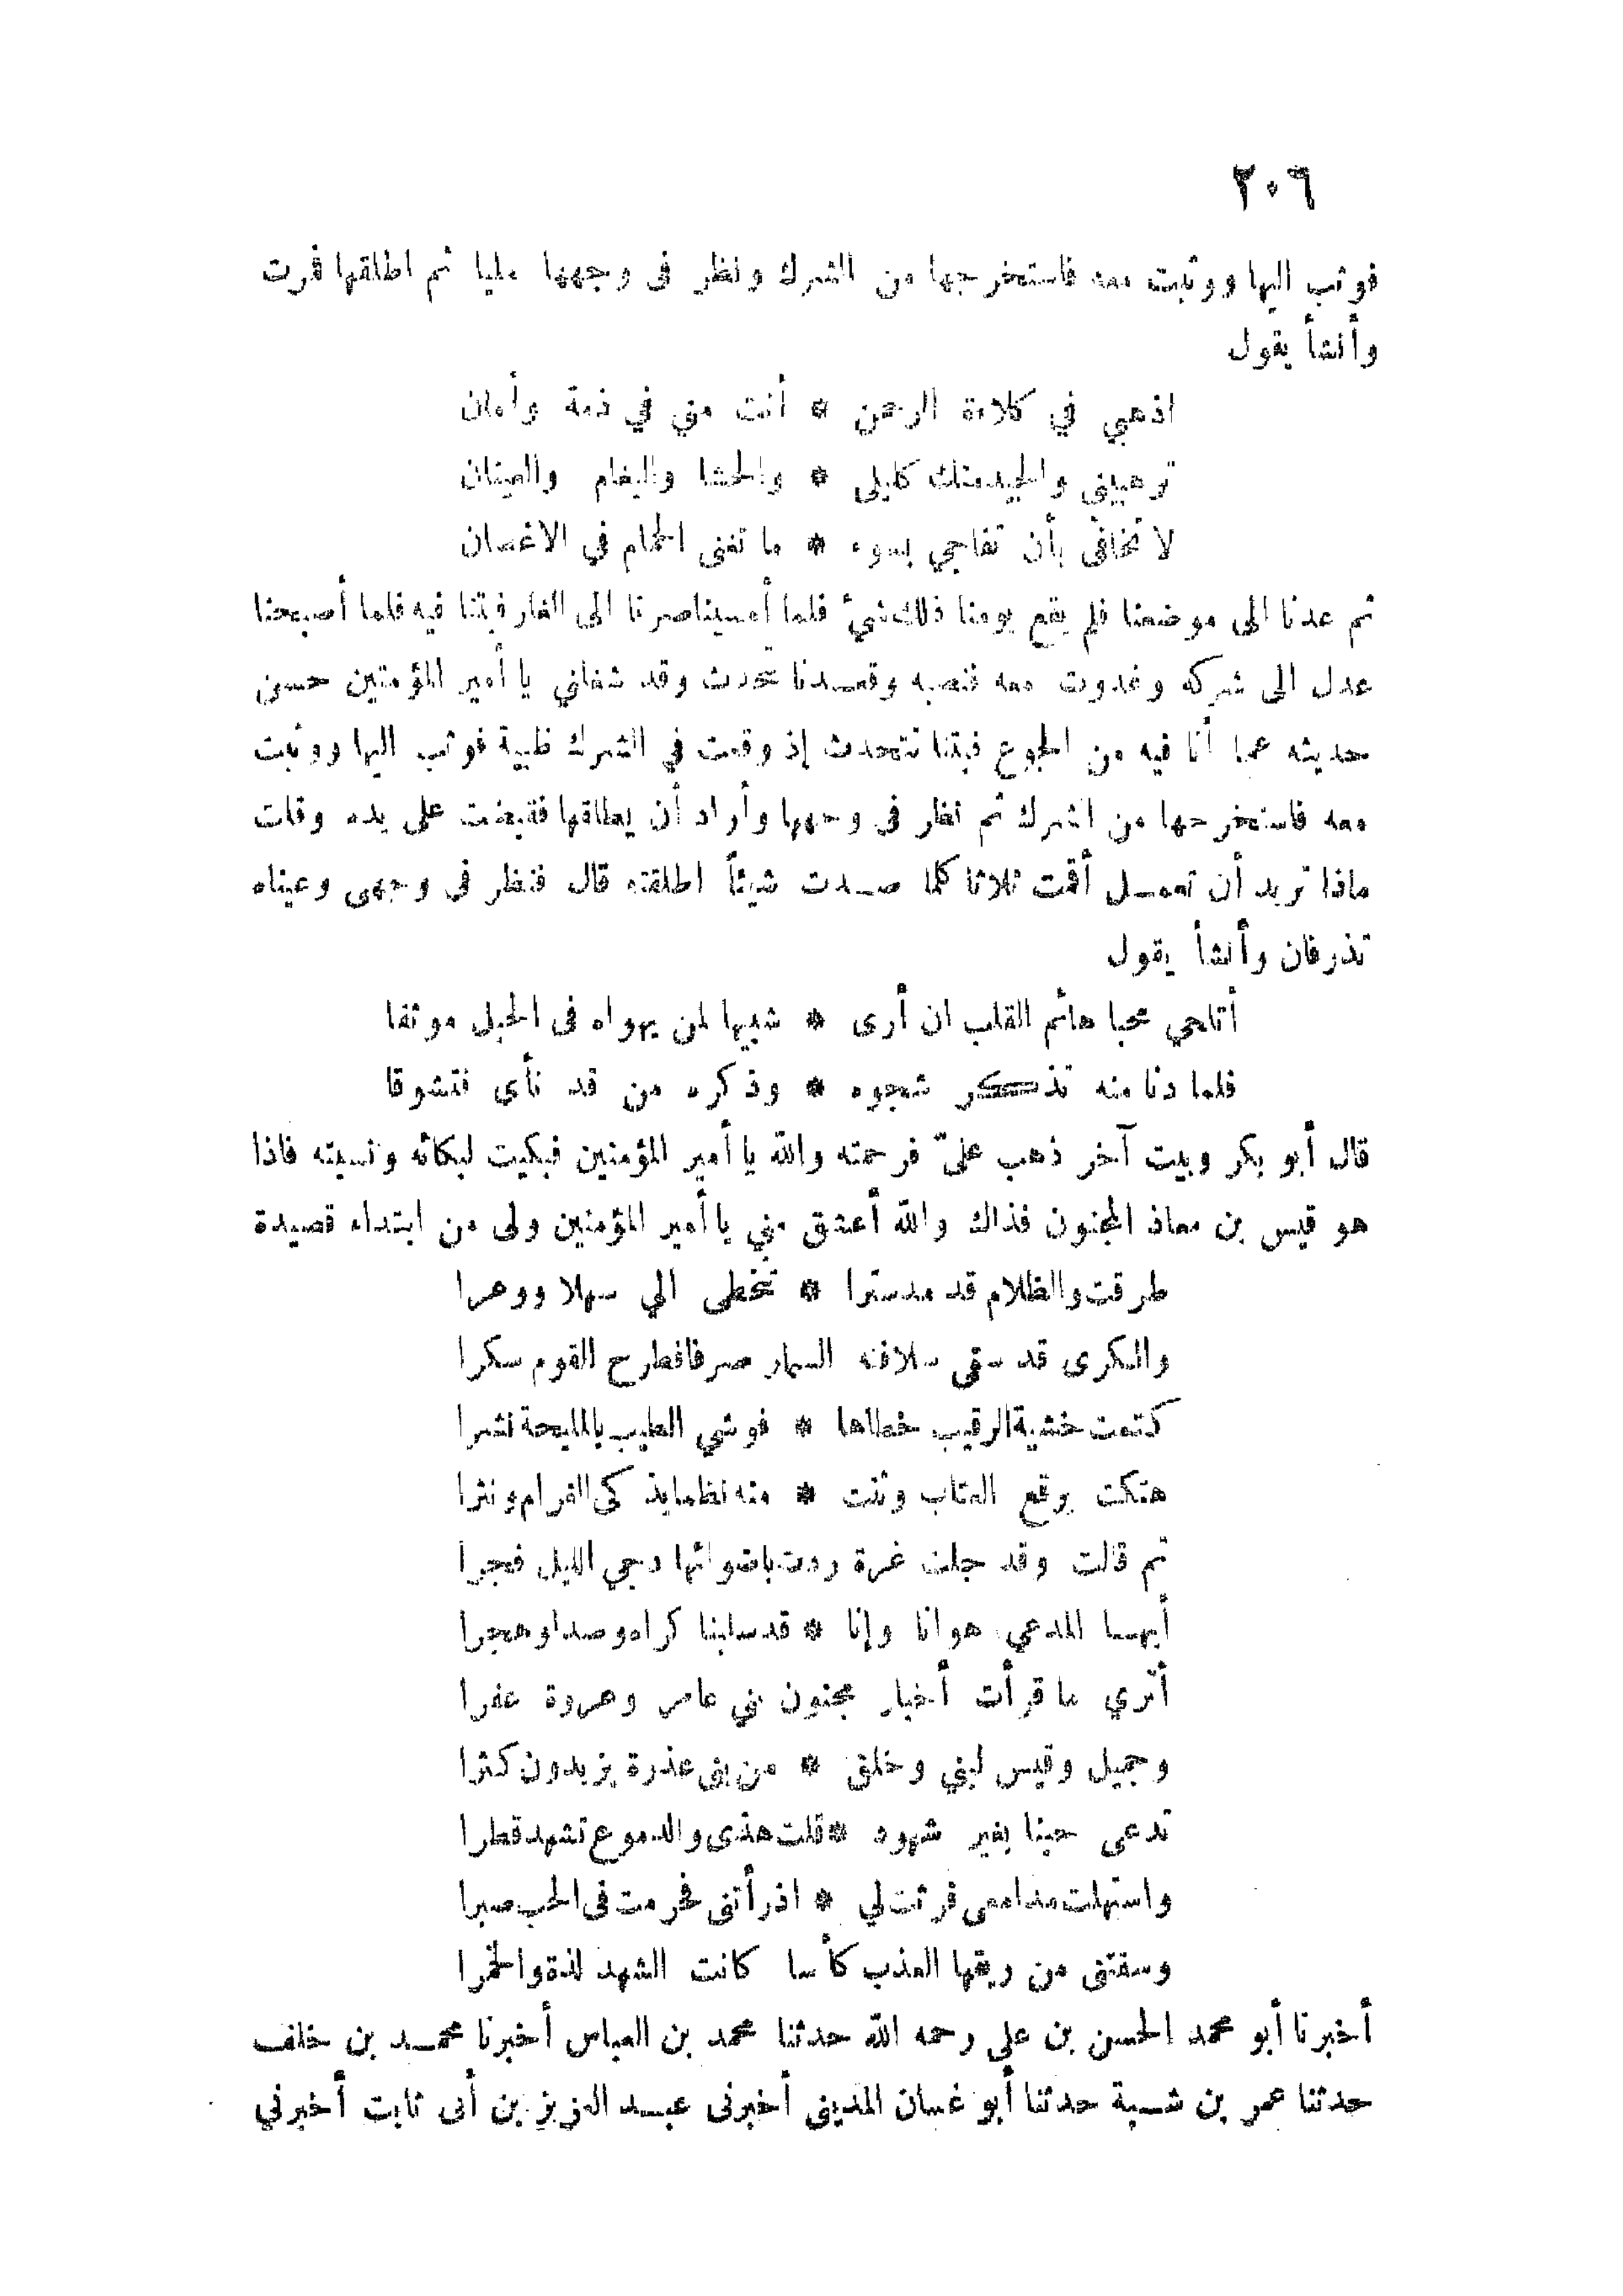 ٢٠٦
فوثب اليها ووثبت معه فاستخرجها من الشرك ونظر فى وجهها مليا ثم اطلقها فمرت
وأنشأ يقول
اذهبي في كلاءة الرحمن * أنت مني في ذمة وأمان
ترهبيني والجيد منك كليلى * والحشا والبغام والعينان
لا تخافى بأن تفاجي بسوء * ما تغنى الحمام في الاغصان
ثم عدنا الى موضعنا فلم يقع يومنا ذلك شيئ فلما أمسينا صرنا الى الغار فبتنا فيه فلما أصبحنا
عدل الى شركه وغدوت معه فنصبه وقعدنا نتحدث وقد شغلني يا أمير المؤمنين حسن
حديثه عما أنا فيه من الجوع فبتنا نتحدث إذ وقعت في الشرك ظبية فوثب اليها ووثبت
معه فاستخرجها من الشرك ثم نظر فى وجهها وأراد أن يطلقها فقبضت على يده وقلت
ماذا تريد أن تعمل أقمت ثلاثا كلما صدت شيئاً اطلقته قال فنظر فى وجهى وعيناه
تذرفان وأنشأ يقول
أتلحي محبا هائم القلب ان أرى * شبيها لمن يهواه فى الحبل موثقا
فلما دنا منه تذكر شجوه * وذكره من قد نأى فتشوقا
قال أبو بكر وبيت آخر ذهب علىّ فرحمته والله يا أمير المؤمنين فبكيت لبكائه ونسبته فاذا
هو قيس بن معاذ المجنون فذاك والله أعشق مني يا أمير المؤمنين ولى من ابتداء قصيدة
طرقت والظلام قد مد سترا * تتخطى الي سهلا ووعرا
والكرى قد سقى سلافته السمار صرفا فطرح القوم سكرا
كتمت خشية الرقيب خطاها * فوشي الطيب بالمليحة نشرا
هتكت برقع العتاب وثنت * منه نظما يذكى الغرام ونثرا
ثم قالت وقد جلت غرة ردت باضوائها دجي الليل فجرا
أيها المدعي هوانا وإنا * قد سلبنا كراه وصدا وهجرا
أتري ما قرأت أخبار مجنون بني عامر وعروة عفرا
وجميل وقيس لبني وخلق * من بنى عذرة يزيدون كثرا
تدعى حبنا بغير شهود * قلت هذى والدموع تشهد قطرا
واستهلت مدامعى فرثت لي * اذ رأتنى فحرمت فى الحب صبرا
وسقتنى من ريقها العذب كأسا كانت الشهد لذة والخمرا
أخبرنا أبو محمد الحسن بن على رحمه الله حدثنا محمد بن العباس أخبرنا محمد بن خلف
حدثنا عمر بن شبة حدثنا أبو غسان المدينى أخبرنى عبد العزيز بن أبى ثابت أخبرني